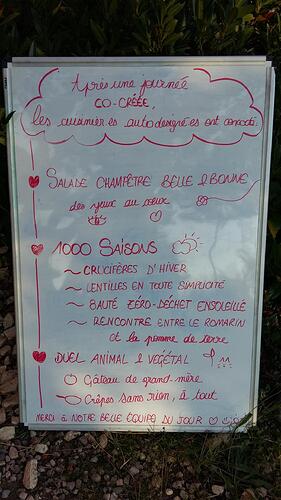 Après une journée
CO-CRÉÉE,
les cuisinier.es autodesigné.es ont concocté.
SALADE CHAMPÊTRE BELLE & BONNE
des yeux au
1000 SAISONS
~ CRUCIFÈRES D'HIVER
~ LENTILLES EN TOUTE SIMPLICITÉ
~ SAUTÉ ZÉRO-DÉCHET ENSOLEILLÉ
~ RENCONTRE ENTRE LE ROMARIN
et la pomme de terre
DUEL ANIMAL & VÉGÉTAL
Gâteau de grand-mère
Crêpes sans rien, à tout
MERCI à NOTRE BELLE ÉQUIPE DU JOUR